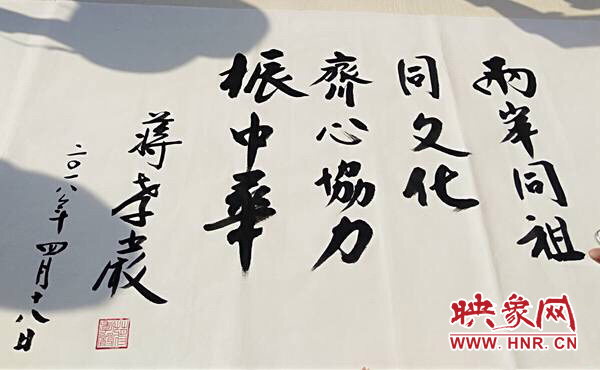 兩岸同祖
同文化
齊心協力
振中華
蔣孝嚴
二〇一八年四月十八日
映象网
WWW.HNR.CN